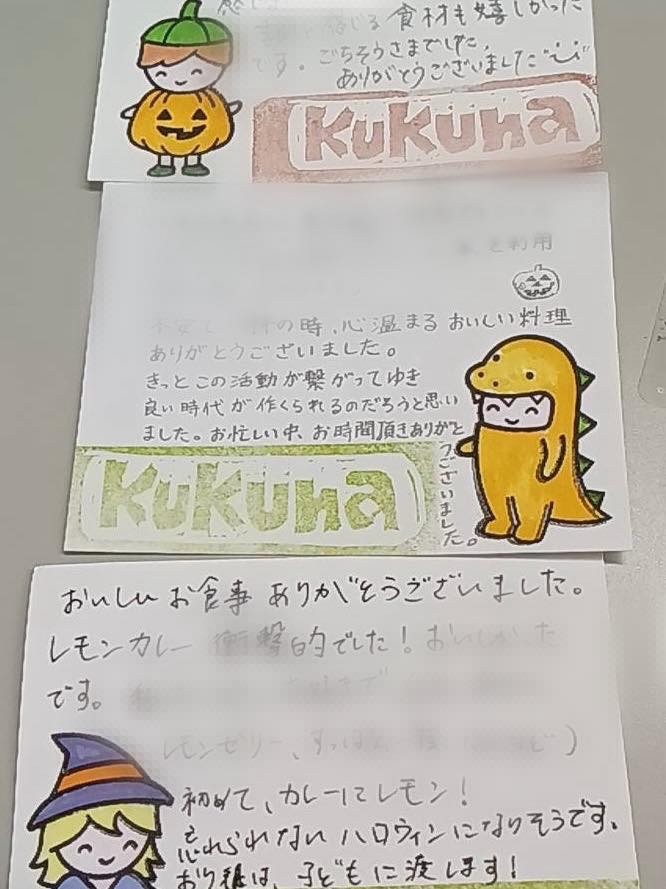 感じる食材も嬉しかった
です。ごちそうさまでした。
ありがとうございました
Kukuna
を利用
の時、心温まる おいしい料理
ありがとうございました。
きっとこの活動が繋がってゆき
良い時代が作くられるのだろうと思い
ました。お忙しい中、お時間頂きありがと
うございました。
Kukuna
おいしいお食事 ありがとうございました。
レモンカレー 衝撃的でした！おいしかった
です。
レモンゼリー、
初めて、カレーにレモン！
忘れられない ハロウィンになりそうです。
は、子どもに渡します！